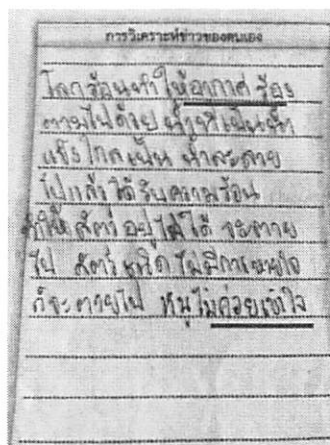 การวิเคราะห์ข่าวของตนเอง
โลกร้อนทำให้อากาศ ร้อง
ตามไปด้วย น้ำที่เป็นน้ำ
แข็ง เป็น น้ำละลาย
ไปแล้วได้รับความร้อน
ทำให้ สัตว์ อยู่ไม่ได้ จะตาย
ไป สัตว์ ไม่มีการ
ก็จะตายไป หนูไม่ค่อยเข้าใจ